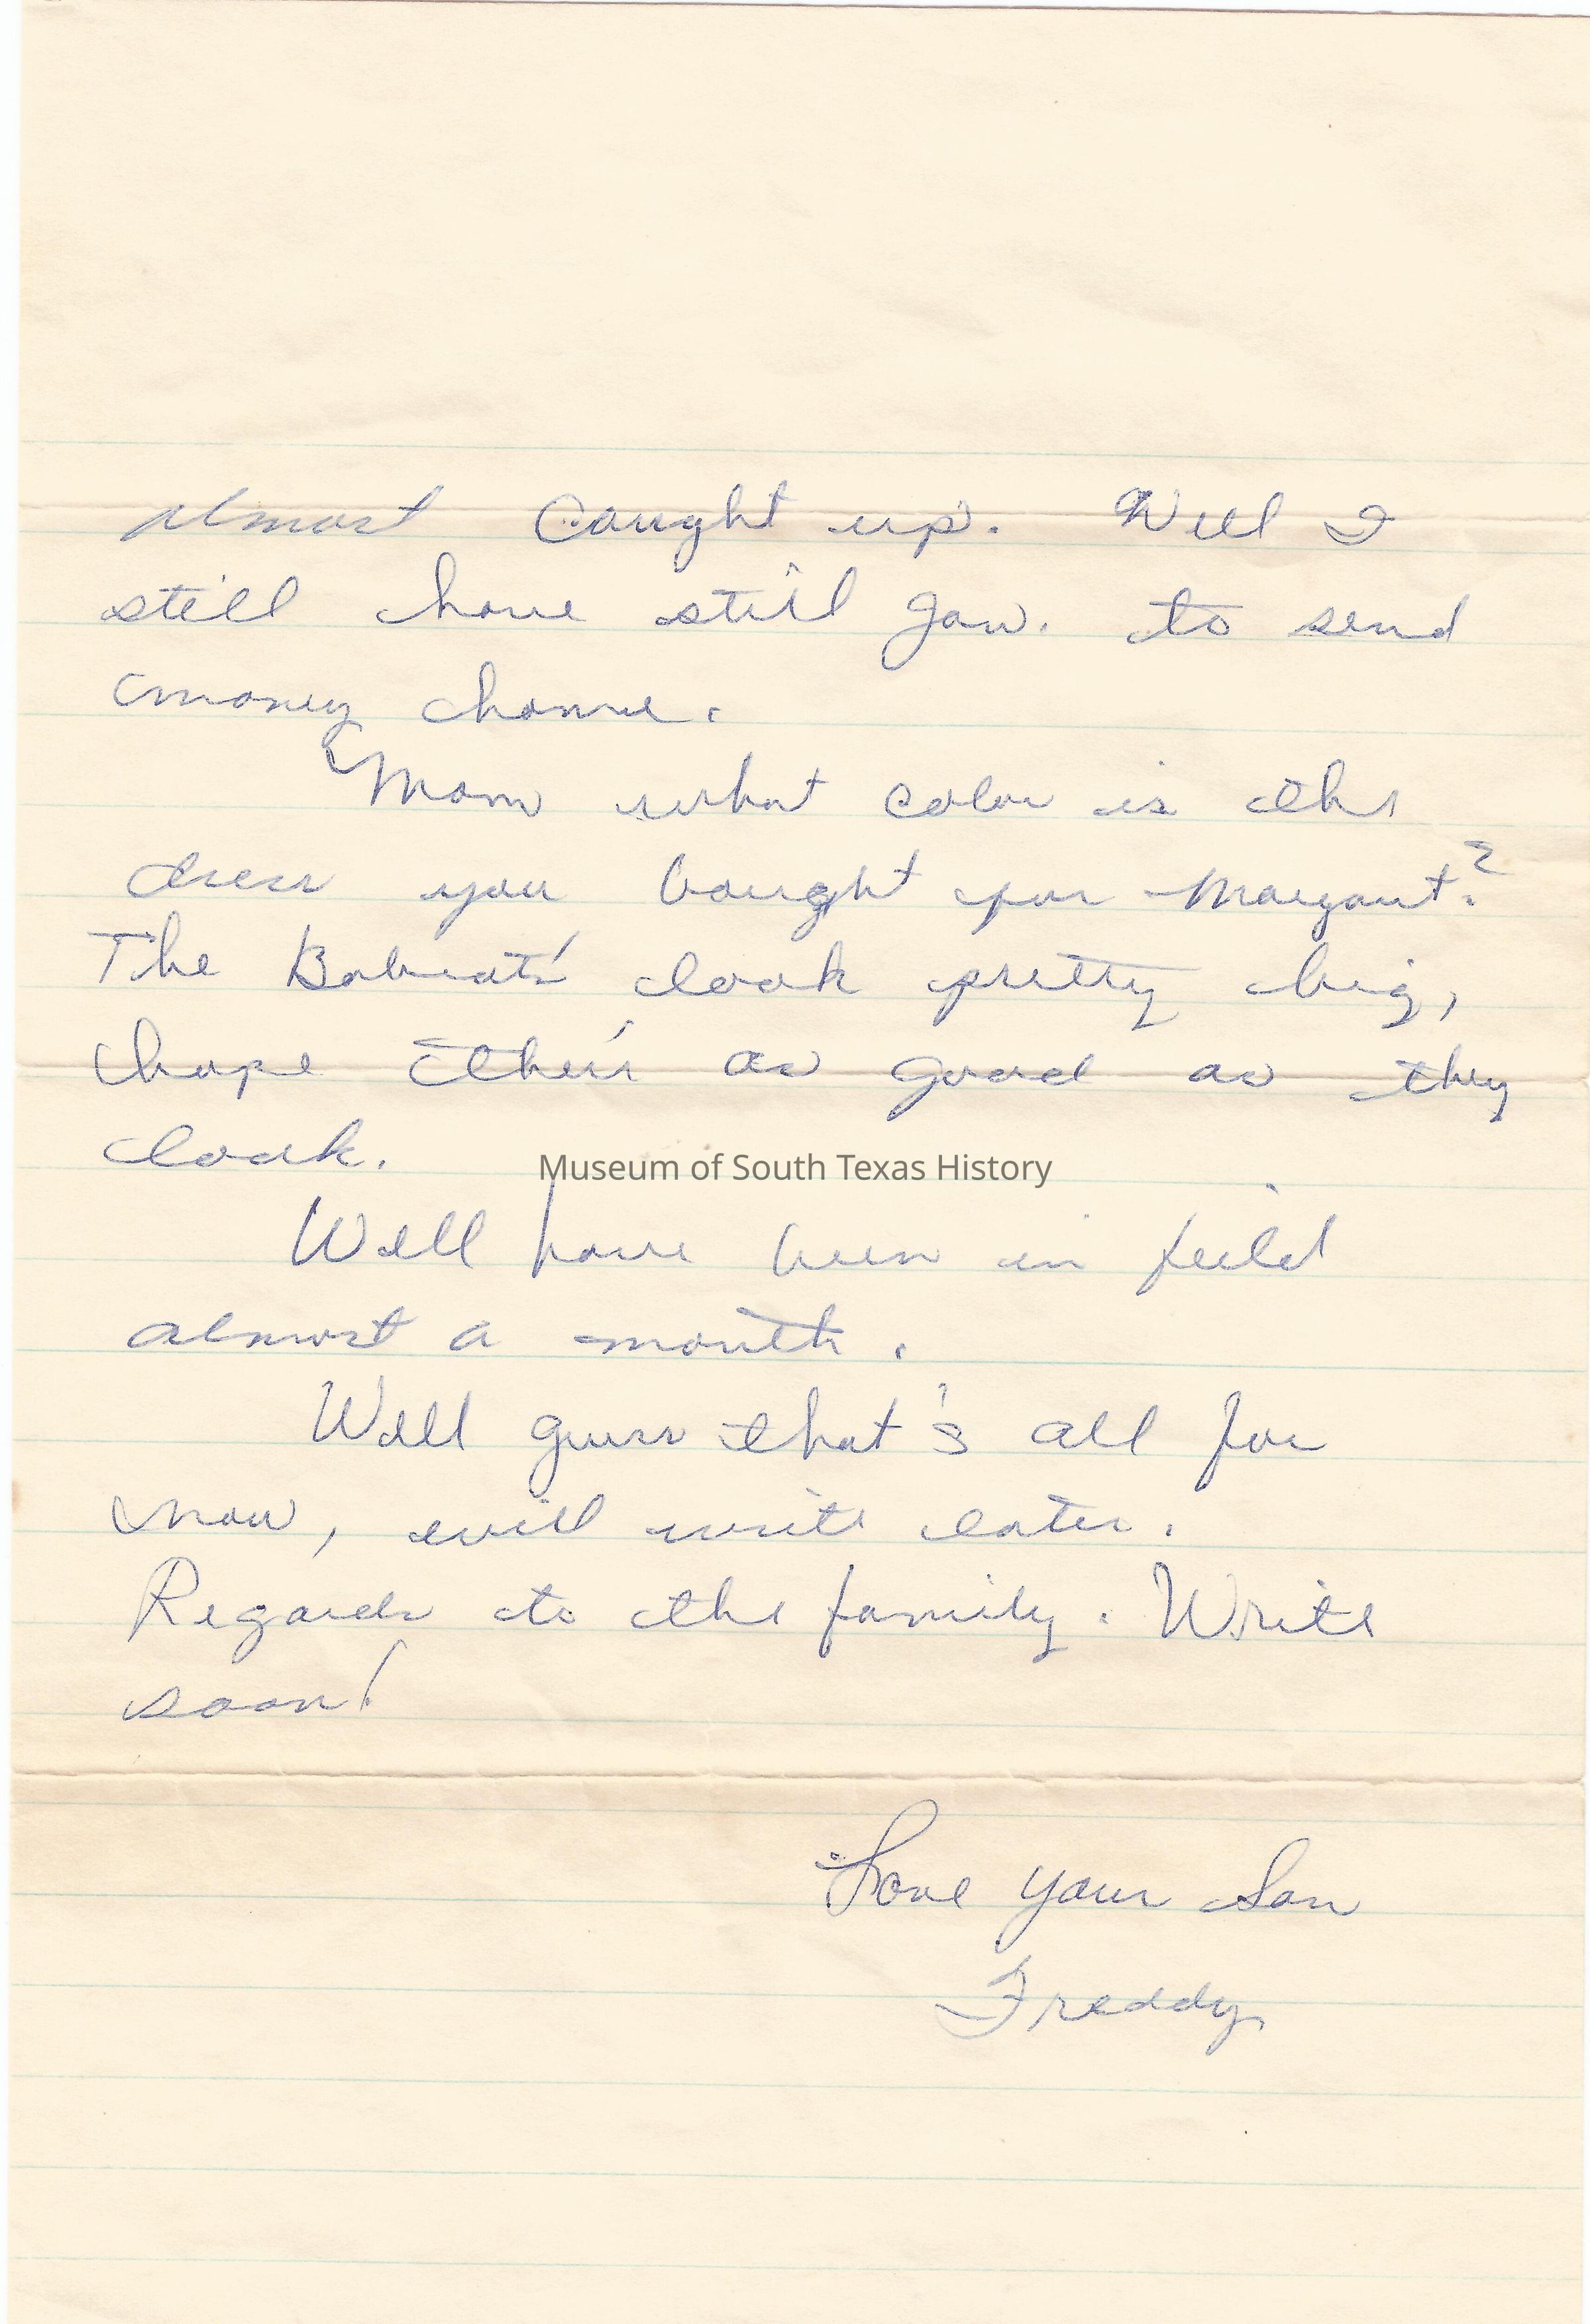 almost caught up. Well I
still have still Jan. to send
money home.
Mom what color is the
dress you bought for Margaret?
The Bobcats' look pretty big,
hope their as good as they
look.
Museum of South Texas History
Well have been in feild
almost a month.
Well guess that's all for
now, will write later.
Regards to the family. Write
soon!
Love your Son
Freddy